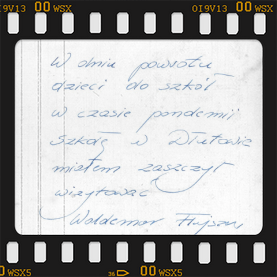 I9V13 00 WSX 0I9V13 00 WSX
W dniu powrotu
dzieci do szkół
w czasie pandemii
Szkołę w Dłutowie
miałem zaszczyt
wizytować
Waldemar
00 WSX5 36 00 WSX5